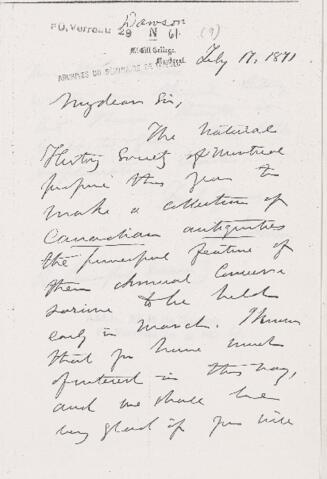 P.V. Verreau
Dawson
29 N 61 (9)
McGill College,
Montreal
ARCHIVES DU SÉMINAIRE DE QUÉBEC
Feby 17, 1871
My dear Sir,
The Natural
History Society of Montreal
propose this year to
make a collection of
Canadian antiquities
the principal feature of
their Annual Conver
sazione to be held
early in March. I know
that you have much
of interest in this way,
and we shall be
very glad if you will